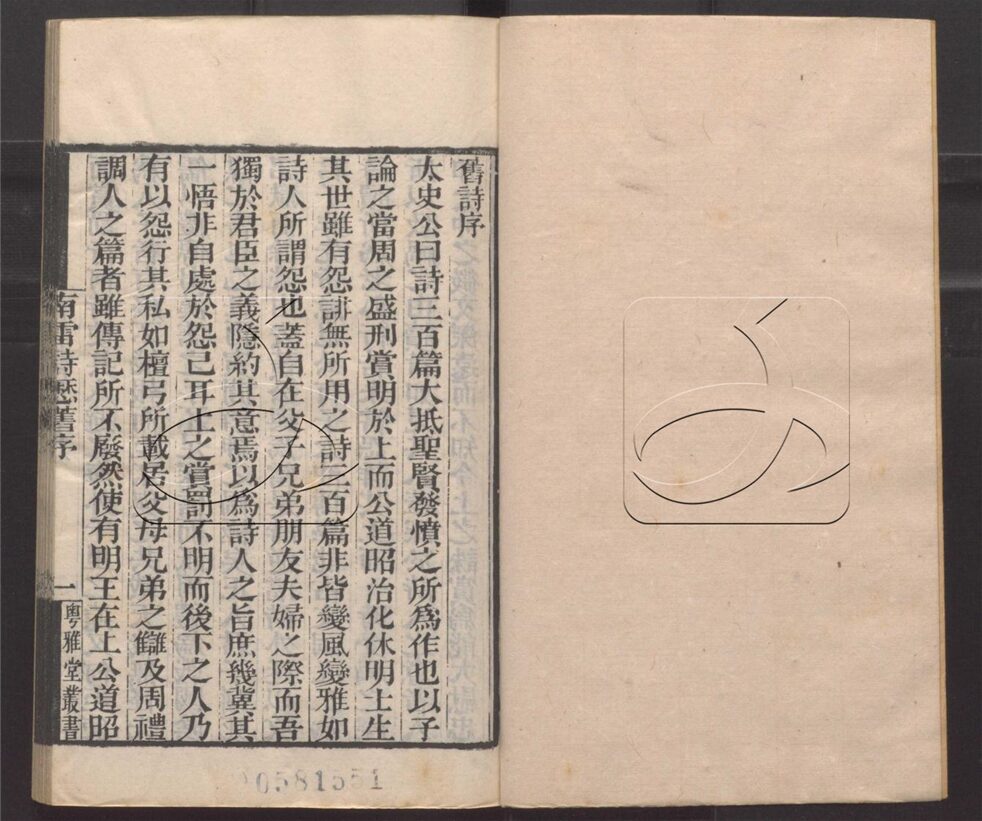 舊詩序
太史公曰詩三百篇大抵聖賢發憤之所爲作也以子
論之當周之盛刑賞明於上而公道昭治化休明士生
其世雖有怨誹無所用之詩三百篇非皆變風變雅如
詩人所謂怨也蓋自在父子兄弟朋友夫婦之際而吾
獨於君臣之義隱約其意焉以爲詩人之旨庶幾冀其
一悟非自處於怨己耳上之賞罰不明而後下之人乃
有以怨行其私如檀弓所載居父母兄弟之讎及周禮
調人之篇者雖傳記所不廢然使有明王在上公道昭
南雷詩歷舊序
一
粵雅堂叢書
0581551